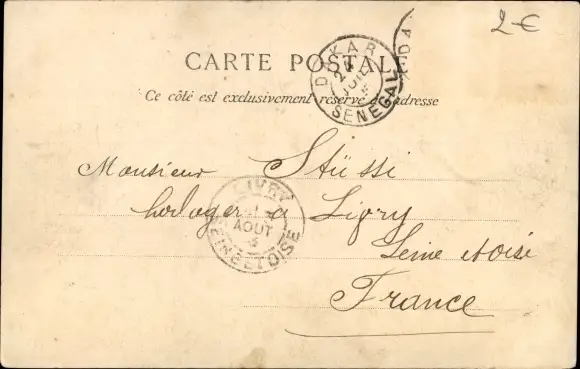 2€
CARTE POSTALE
Ce côté est exclusivement réservé à l'adresse
DAKAR
JUIL
SENEGAL
DA
Monsieur Stüssi
horloger a Livry
Seine et oise
France
LIVRY
AOUT
SEINE ET OISE